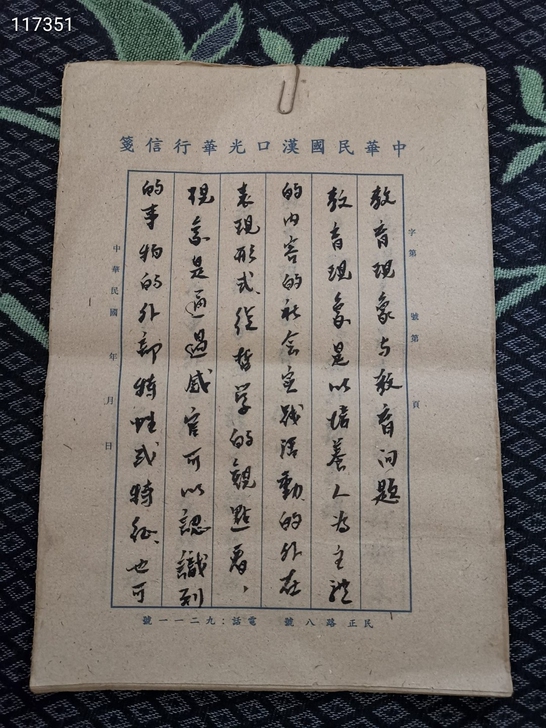 117351
中華民國漢口光華行信箋
字第 號第 頁
教育現象与教育问題
教育現象是以培養人为主體
的内容的社会实践活動的外在
表现形式、從哲学的觀點看，
现象是通過感官可以認識到
的事物的外部特性或特征、也可
中華民國 年 月 日
民正路八號 電話：九二一一號